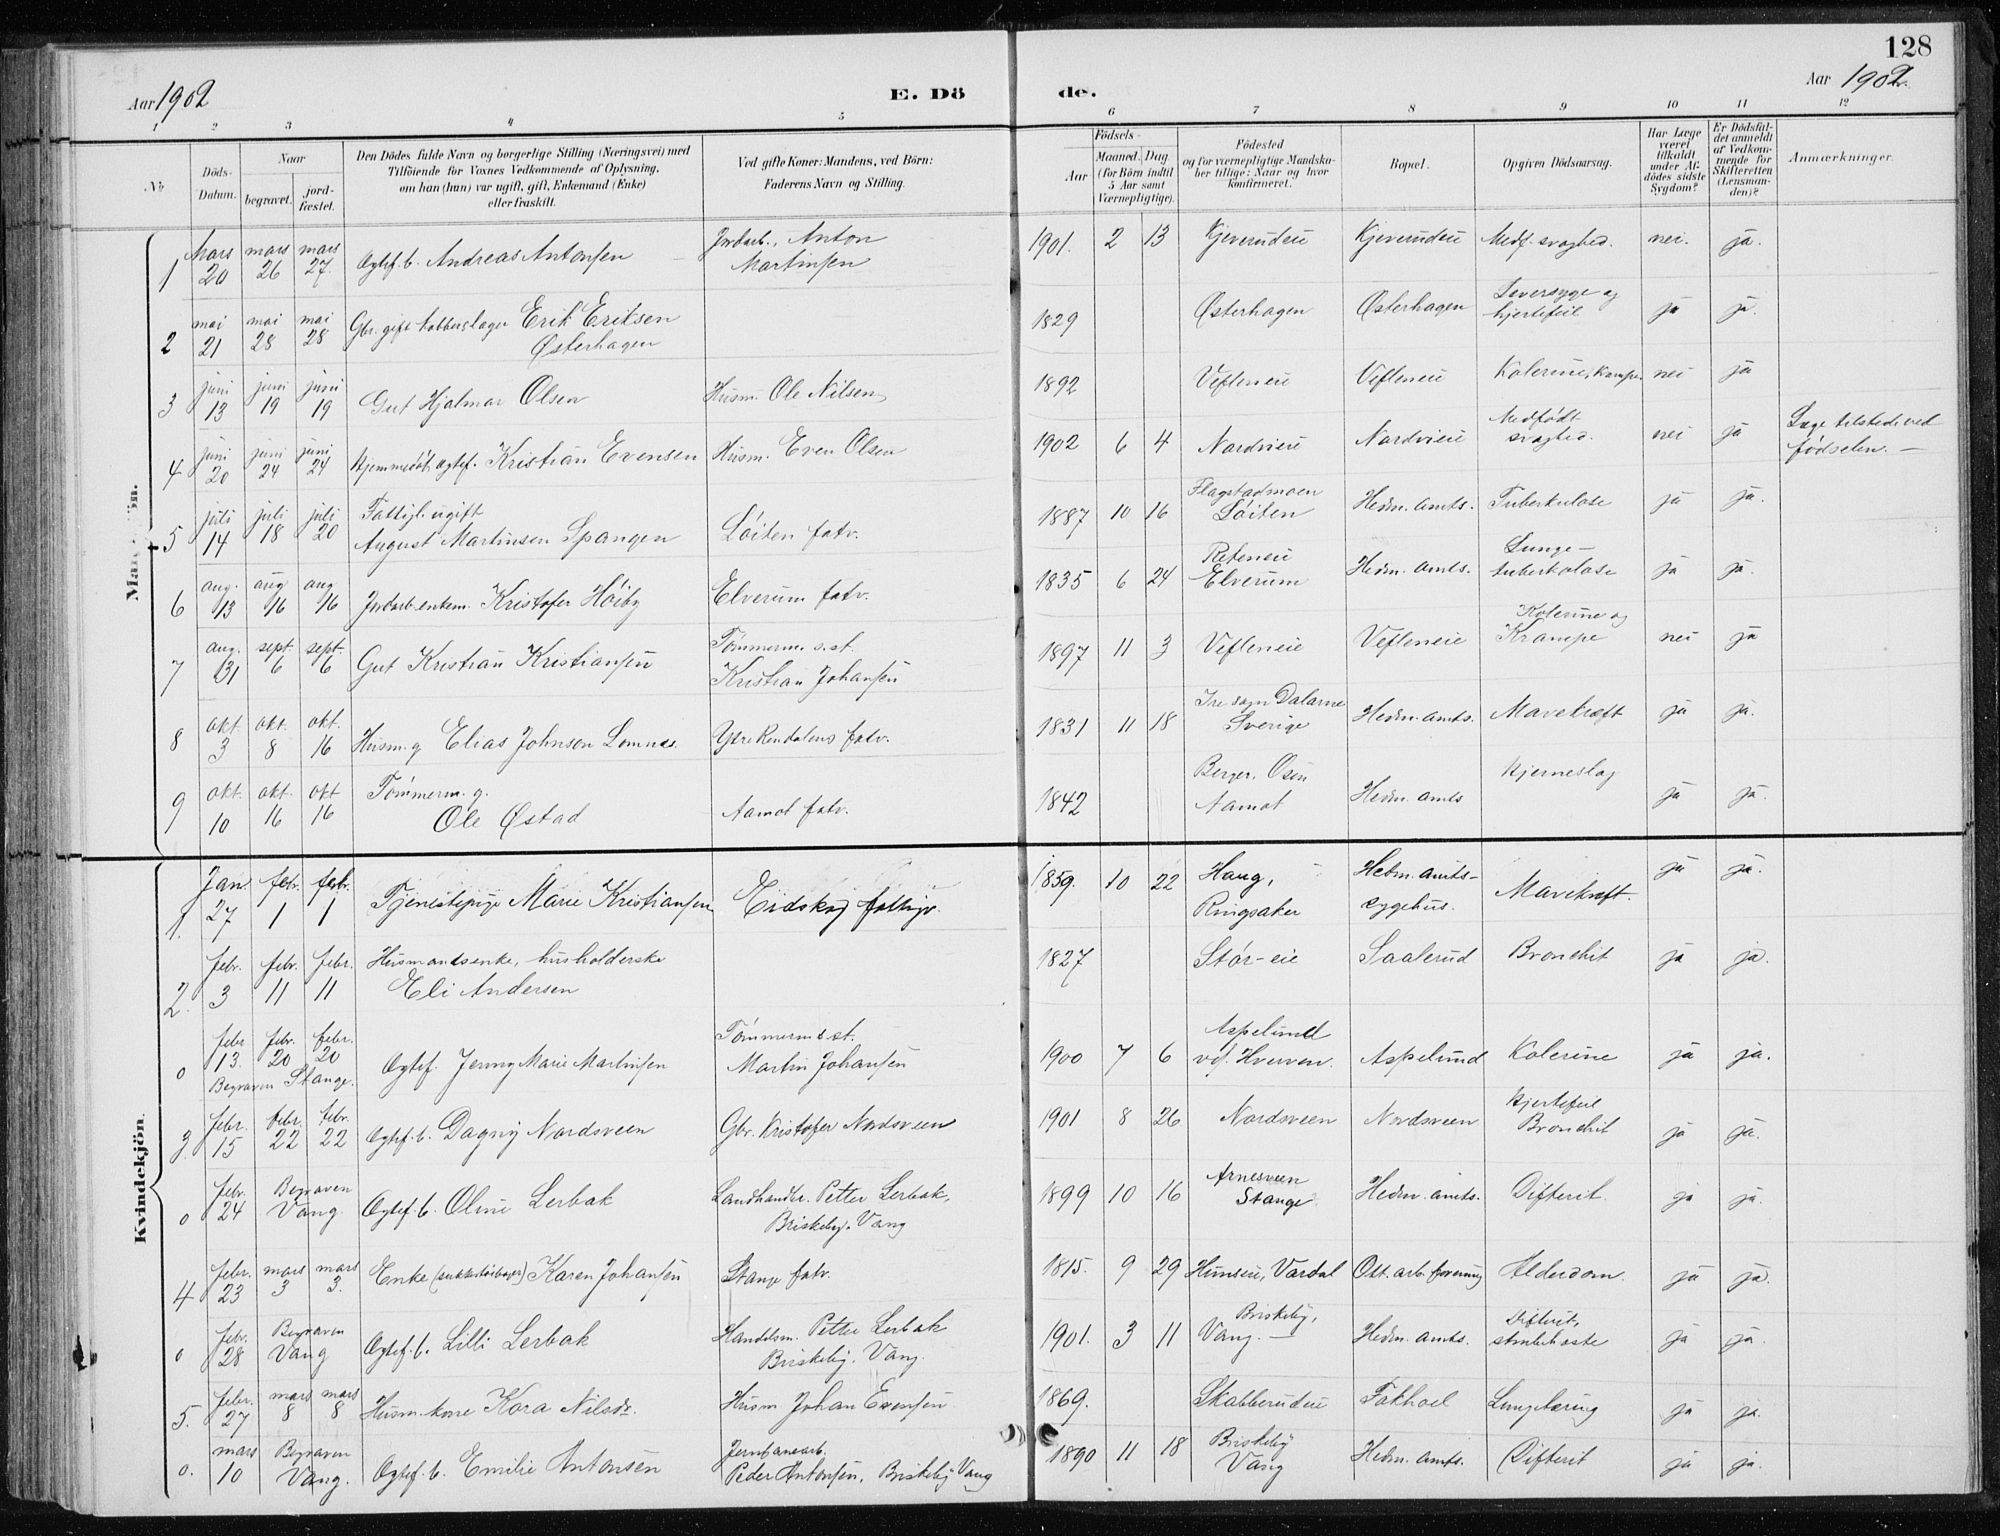 128
Aar 1902
E. Dö
de.
Aar 1902.
1 2 3 4 5 6 7 8 9 10 11 12
№
Döds-
Datum.
Naar
begravet.
jord-
fæstet.
Den Dödes fulde Navn og borgerlige Stilling (Næringsvei) med
Tilföiende for Voxnes Vedkommende af Oplysning,
om han (hun) var ugift, gift, Enkemand (Enke)
eller fraskilt.
Ved gifte Koner: Mandens, ved Börn:
Faderens Navn og Stilling.
Födsels-
Aar
Maaned. Dag
(for Börn indtil
5 Aar samt
Værnepligtige).
Födested
og for værnepligtige Mandska-
ber tillige: Naar og hvor
konfirmeret.
Bopæl.
Opgiven Dödsaarsag.
Har Læge
været
tilkaldt
under Af-
dödes sidste
Sygdom?
Er Dödsfal-
det anmeldt
af Vedkom-
mende for
Skifteretten
(Lensman-
den)?
Anmærkninger.
1 Mars 20 mars 26 mars 27. Ogtef. b. Andreas Antonsen Jordarb., Anton Martinsen 1901. 2 13 Kjeverudeie Kjeverudeie Medf. svaghed. nei. ja.
2 mai 21 mai 28 mai 28 Gbr. gift kobberslager Erik Eriksen Østerhagen 1829 Østerhagen Østerhagen Leversyge og hjertefeil ja ja.
3 juni 13 juni 19 juni 19 Gut Hjalmar Olsen Husm. Ole Nilsen 1892 Vefleneie Vefleneie Kolerine, Krampe nei ja
4 juni 20 juni 24 juni 24 Hjemmedøbt ogtef. Kristian Evensen Husm. Even Olsen 1902 6 4 Nordvieie Nordvieie Medfødt svaghed. nei ja Læge tilstede ved fødselen. —
5 juli 14 juli 18 juli 20 Fattigl. ugift August Martinsen Spangen Løiten fatv. 1887 10 16 Flagstadmoen Løiten Hedm. amts. Tuberkulose ja ja.
6 aug. 13 aug 16 aug 16 Jordarb. enkem. Kristofer Høiby Elverum fatv. 1835 6 24 Elverum Hedm. amts. Lunge-tuberkulose ja ja.
7 aug. 31 sept. 6 sept. 6 Gut Kristian Kristiansen Tømmerm. s. st. Kristian Johansen 1897 11 3 Vefleneie Vefleneie Kolerine og Krampe nei ja
8 okt. 3 okt. 8 okt. 16 Husm. g. Elias Johnsen Lomnes. Ytre Rendalens fatv. 1831 11 18 Dalarne Sverige Hedm. amts. Mavekræft ja ja.
9 okt. 10 okt. 16 okt 16 Tømmerm. g. Ole Østad Aamot fatv. 1842 Berger, Osen Aamot Hedm. amts Hjerneslag ja ja.
Mandkjön.
1. Jan. 27 febr. 1 febr. 1 Tjenestepige Marie Kristiansen Eidskog fattigv. 1859. 10 22 Haug, Ringsaker Hedm. amts-sygehus. Mavekræft. ja ja.
2. febr. 3 febr. 11 febr. 11 Husmandsenke, husholderske Eli Andersen 1827 Stør-eie Saalerud Bronchit ja ja.
0 febr 13. febr. 20 febr. 20 Begraven Stange. Ogtef. Jenny Marie Martinsen Tømmerm. s. st. Martin Johansen 1900 7 6 Aspelund ved Hverven. Aspelund Kolerine ja ja.
3. febr. 15 febr. 22 febr. 22 Ogtef. b. Dagny Nordsveen Gbr. Kristofer Nordsveen 1901 8 26 Nordsveen Nordsveen Hjertefeil Bronchit ja ja.
0 febr. 24 Begraven Vang. Ogtef. b. Oline Lerbak Landhandler. Petter Lerbak, Briskeby. Vang 1899 10 16 Arnesveen Stange Hedm. amts. Difterit. ja ja.
4 febr. 23 mars 3 mars 3. Enke Karen Johansen Stange fatv. 1815. 9 29 Hunseie, Vardal Ott. arb. forening Alderdom. ja ja.
0 febr. 28 Begraven Vang Ogtef. b. Lilli Lerbak Handelsm. Petter Lerbak Briskeby. Vang. 1901. 3 11 Briskeby, Vang. — Hedm. amts. Difterit, strubehoste ja ja.
5. febr. 27 mars 8 mars 8 Husm. kone Kora Nilsdr. Husm Johan Evensen 1869. Skabberudeie Fokhoel Lungetæring ja ja.
0. mars 10 Begraven Vang. Ogtef. b. Emilie Antonsen Jernbanearb. Peder Antonsen, Briskeby Vang 1890 11 18 Briskeby Vang Hedm. amts. Difterit ja ja.
Kvindekjön.